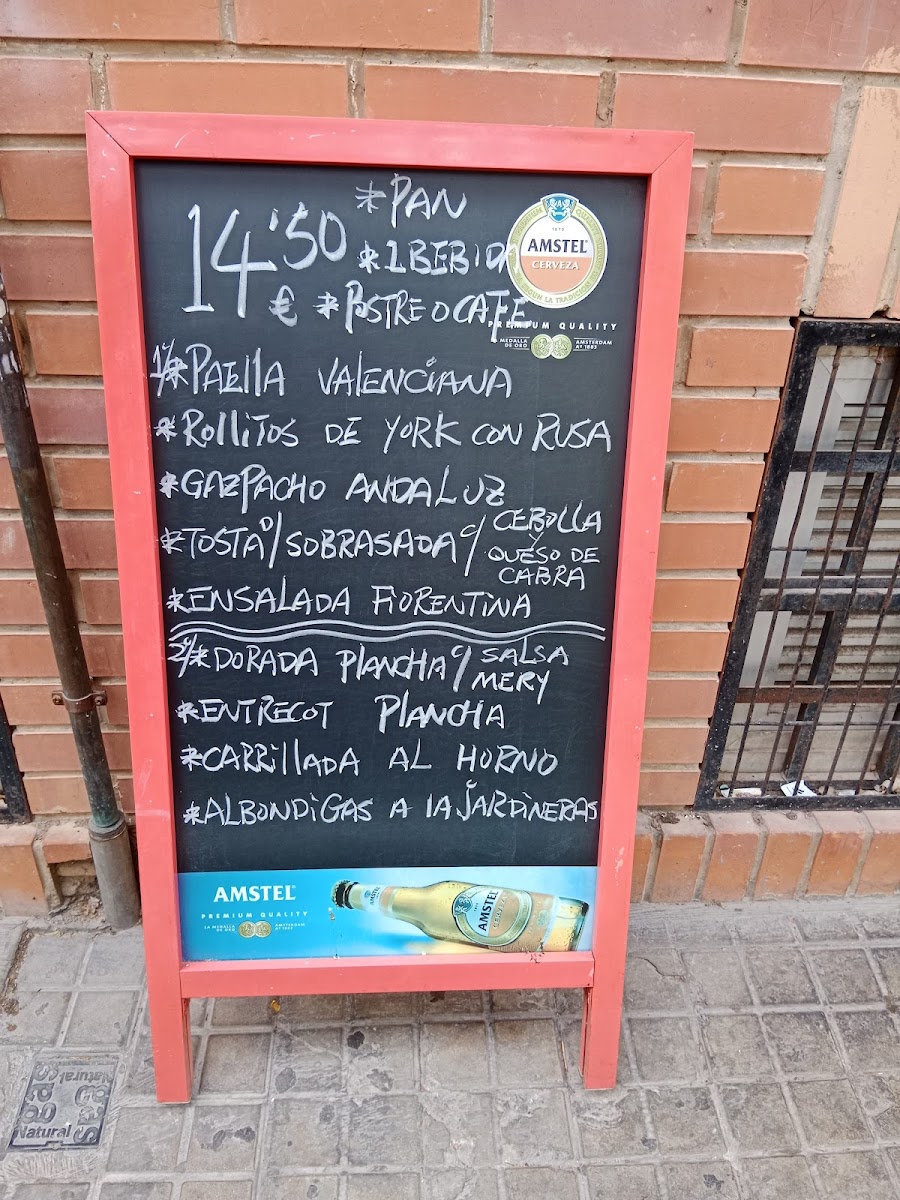 14'50 €
*PAN
*1 BEBIDA
*POSTRE O CAFE
AMSTEL
CERVEZA
PREMIUM QUALITY
MEDALLA DE ORO
AMSTERDAM Aº 1883
1º/*PAELLA VALENCIANA
*ROLLITOS DE YORK CON RUSA
*GAZPACHO ANDALUZ
*TOSTAº/SOBRASADA C/ CEBOLLA
Y
QUESO DE
CABRA
*ENSALADA FIORENTINA
2º/*DORADA PLANCHA C/ SALSA
MERY
*ENTRECOT PLANCHA
*CARRILLADA AL HORNO
*ALBONDIGAS A LA JARDINERAS
AMSTEL
PREMIUM QUALITY
LA MEDALLA DE ORO
AMSTERDAM Aº 1883
AMSTEL
Natural
gas
Natural
gas